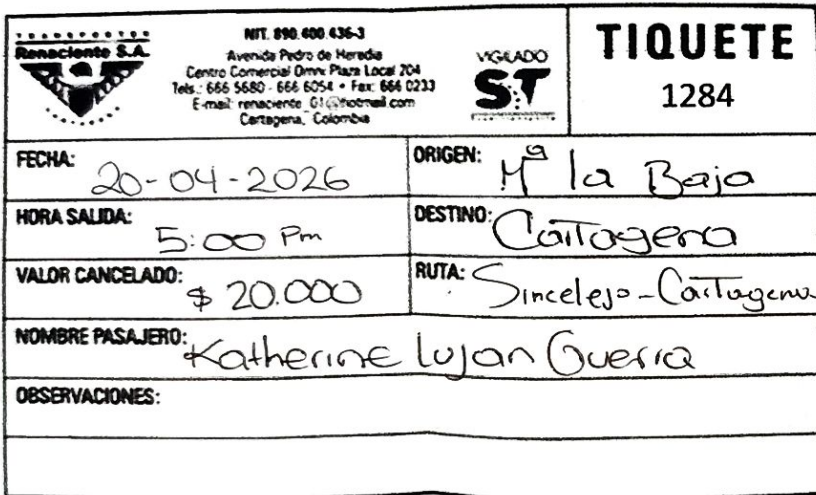 Renaciente S.A.
NIT. 890.400.436-3
Avenida Pedro de Heredia
Centro Comercial Omni Plaza Local 204
Tels.: 666 5680 - 666 6054 • Fax: 666 0233
E-mail: renaciente_01@hotmail.com
Cartagena, Colombia
VIGILADO
ST
TIQUETE
1284
FECHA: 20-04-2026
ORIGEN: Mª la Baja
HORA SALIDA: 5:00 Pm
DESTINO: Cartagena
VALOR CANCELADO: $ 20.000
RUTA: Sincelejo - Cartagena
NOMBRE PASAJERO: Katherine Lujan Guerra
OBSERVACIONES: